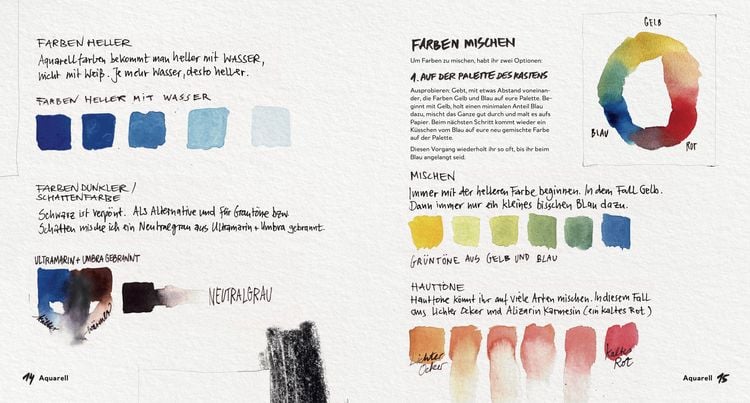 FARBEN HELLER
Aquarellfarben bekommt man heller mit WASSER,
nicht mit Weiß. Je mehr Wasser, desto heller.
FARBEN HELLER MIT WASSER
FARBEN DUNKLER/
SCHATTENFARBE
Schwarz ist verpönt. Als Alternative und für Grautöne bzw
Schatten mische ich ein Neutralgrau aus Ultramarin + Umbra gebrannt.
ULTRAMARIN + UMBRA GEBRANNT
kühler wärmer
NEUTRALGRAU
14 Aquarell
FARBEN MISCHEN
Um Farben zu mischen, habt ihr zwei Optionen:
1. AUF DER PALETTE DES KASTENS
Ausprobieren: Gebt, mit etwas Abstand voneinan-
der, die Farben Gelb und Blau auf eure Palette. Be-
ginnt mit Gelb, holt einen minimalen Anteil Blau
dazu, mischt das Ganze gut durch und malt es aufs
Papier. Beim nächsten Schritt kommt wieder ein
Küsschen vom Blau auf eure neu gemischte Farbe
auf der Palette.
Diesen Vorgang wiederholt ihr so oft, bis ihr beim
Blau angelangt seid.
GELB
BLAU
ROT
MISCHEN
Immer mit der helleren Farbe beginnen. In dem Fall Gelb.
Dann immer nur ein kleines bisschen Blau dazu.
GRÜNTÖNE AUS GELB UND BLAU
HAUTTÖNE
Hauttöne könnt ihr auf viele Arten mischen. In diesem Fall
aus Lichter Ocker und Alizarin Karmesin (ein kaltes Rot)
Lichter
Ocker
kaltes
Rot
Aquarell 15